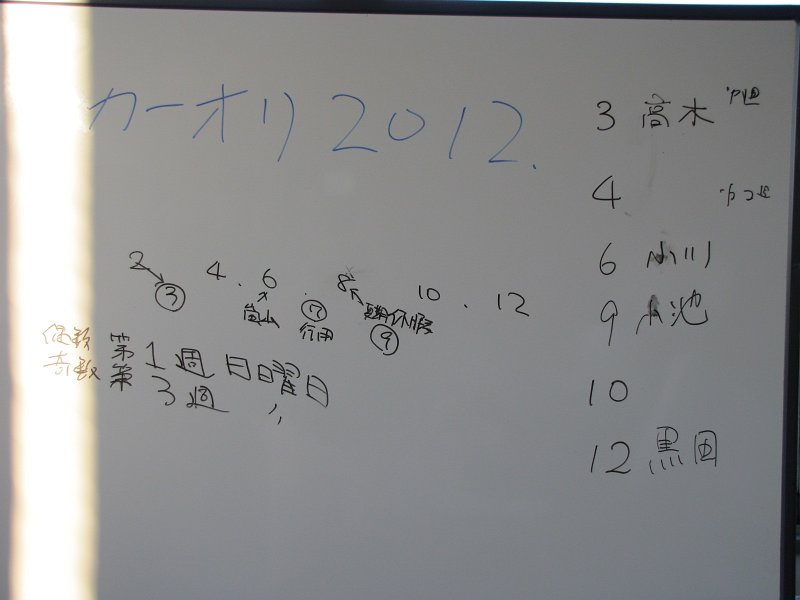 カーオリ2012.
2 4 . 6 8 10 . 12
③ 嵐山 ⑦ 行田 夏期休暇 ⑨
偶数 第1週日日曜日
奇数 第3週 〃
3 高木
4
6 小川
9 小池
10
12 黒田